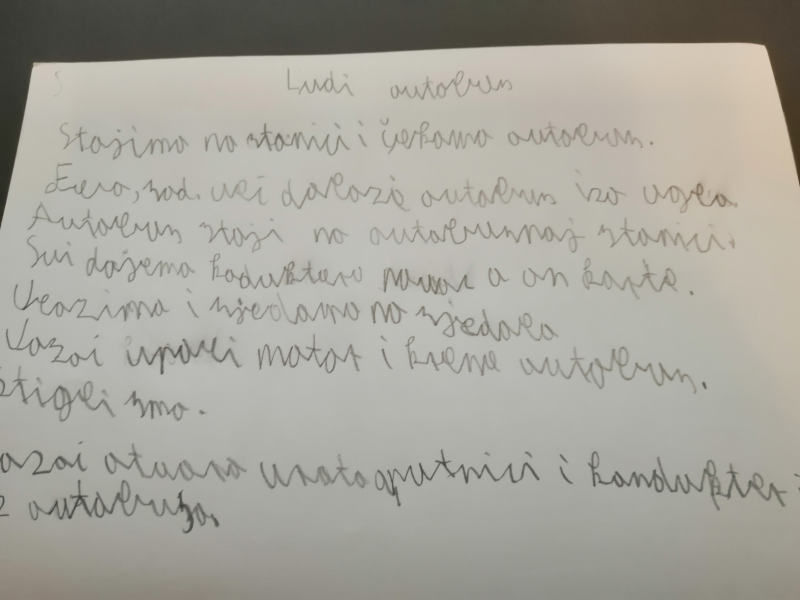 Ludi autobus
Stojimo na stanici i čekamo autobus.
Evo, sad. već dolazi autobus iza ugla.
Autobus stoji na autobusnoj stanici.
Svi dajemo kodukteru novac a on karte.
Ulazimo i sjedamo na sjedala
Vozač upali motor i krene autobus.
stigli smo.
ozač otvara vrata putnici i kondukter
z autobusa.